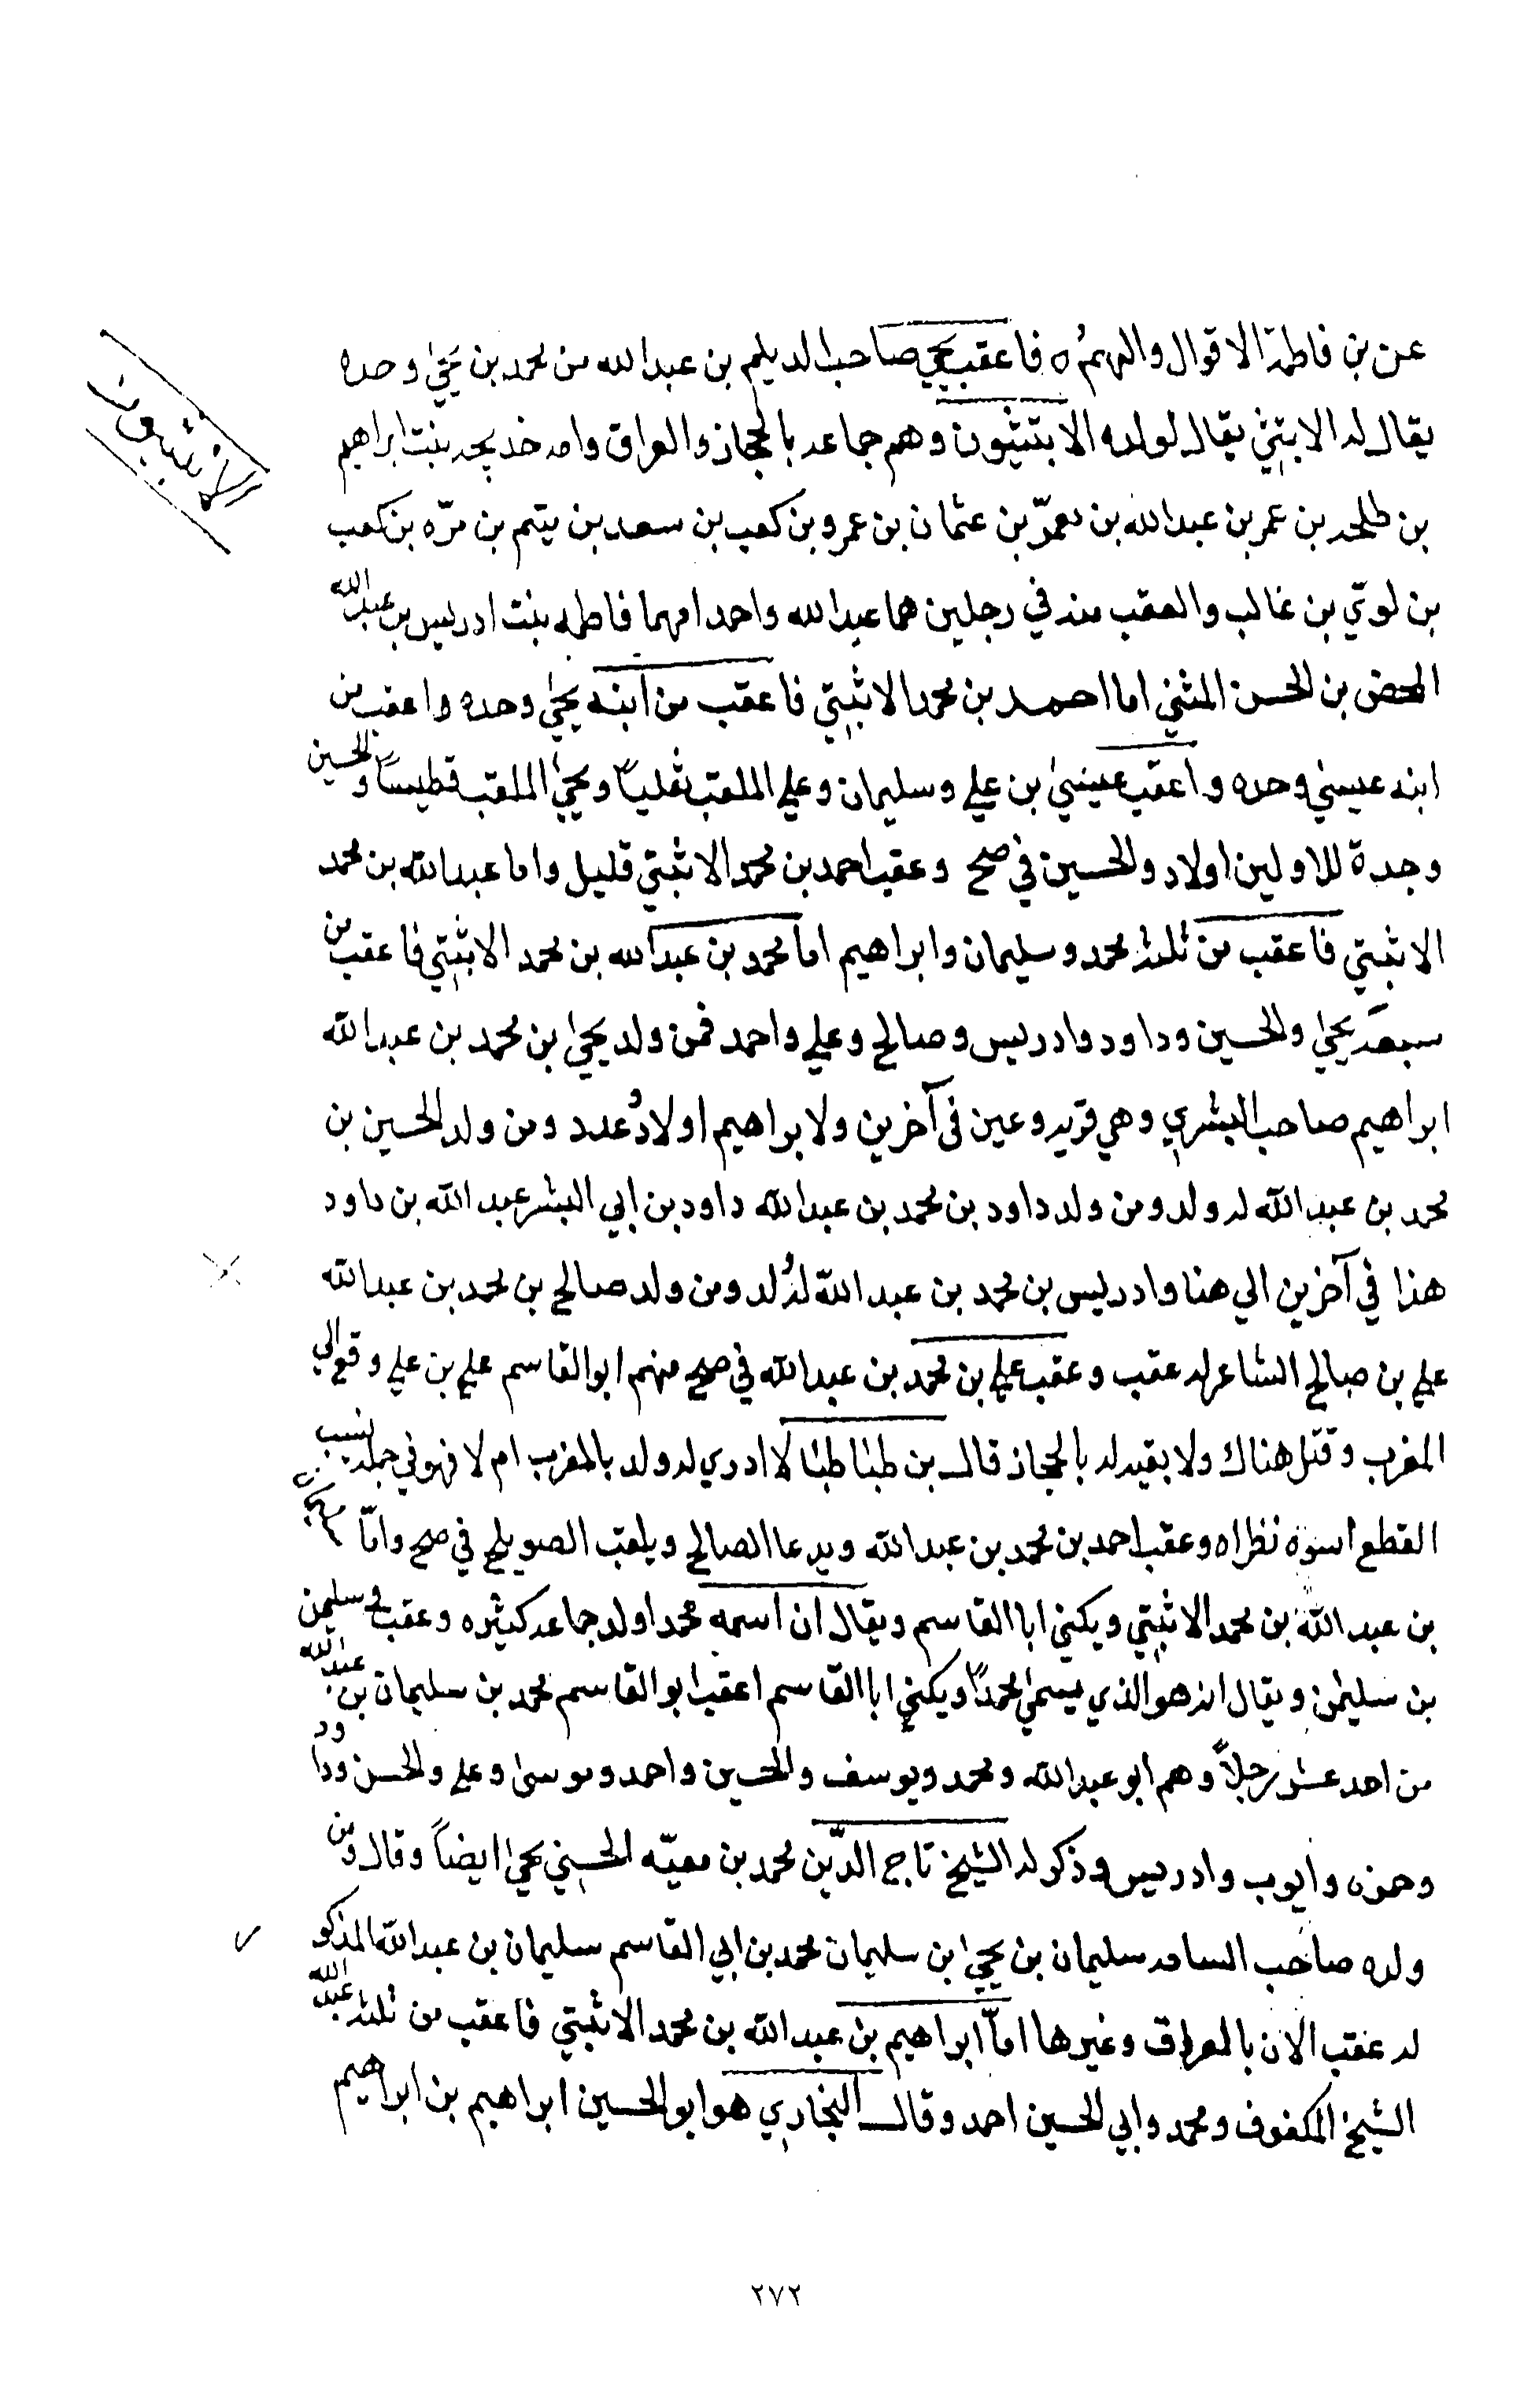 عن بن فاطمة الاقوال والهمزه فاعقب يحيي صاحب الديلم بن عبدالله من محمد بن يحيىٰ وحده
يقال له الابتثي يقال لولده الابتثيون وهم جماعه بالحجاز والعراق وامه خديجه بنت ابراهيم
الاثبتيون
بن طلحه بن عمر بن عبدالله بن معمّر بن عثمان بن عمرو بن كعب بن سعد بن يتم بن مرّه بن كعب
بن لوي بن غالب والعقب منه في رجلين هما عبدالله واحمد امهما فاطمه بنت ادريس بن عبدالله
المحض بن الحسن المثني اما احمد بن محمد الاثبتي فاعقب من ابنه يحيىٰ وحده واعقب من
ابنه عيسيٰ وحده واعقب عيسيٰ بن علي وسليمان وعلي الملقب ثقلياً ويحيىٰ الملقب قطيساً والحسين
وجدة للاولين اولاد والحسين في صح وعقب احمد بن محمد الاثبتي قليل واما عبدالله بن محمد
الاثبتي فاعقب من ثلثه محمد وسليمان وابراهيم اما محمد بن عبدالله بن محمد الابثتي فاعقب من
سبعة يحيىٰ والحسين وداود وادريس وصالح وعلي واحمد فمن ولد يحيىٰ ابن محمد بن عبدالله
ابراهيم صاحب البشري وهي قريه وعين في آخرين ولابراهيم اولادُ عدد ومن ولد الحسين بن
محمد بن عبدالله له ولد ومن ولد داود بن محمد بن عبدالله داود بن ابي البشر عبد الله بن داود
هذا في آخرين الي هنا وادريس بن محمد بن عبدالله له ولد ومن ولد صالح بن محمد بن عبدالله
علي بن صالح الشاعر له عقب وعقب علي بن محمد بن عبدالله في صح منهم ابوالقاسم علي بن علي وقع الي
المغرب وقتل هناك ولا بقيه له بالحجاز قال بن طبا طبا لا ادري له ولد بالمغرب ام لا فهو في جمله نسب
القطع اسوه نظراه وعقب احمد بن محمد بن عبدالله ويدعا الصالح ويلقب الصويلح في صح وامّا سليمان
بن عبدالله بن محمد الاثبتي ويكني ابا القاسم ويقال ان اسمه محمد اولد جماعه كثيره وعقب سليمن
بن سليمٰن ويقال انه هو الذي يسمىٰ محمداً ويكني ابا القاسم اعقب ابو القاسم محمد بن سليمان بن عبدالله
من احد عشر رجلاً وهم ابو عبدالله ومحمد ويوسف والحسين واحمد وموسىٰ وعلي والحسن وداود
وحمزه وايوب وادريس وذكر له الشيخ تاج الدّين محمد بن معيّه الحسني يحيىٰ ايضاً وقال ومن
ولده صاحب السامه سليمان بن يحيىٰ ابن سليمان محمد بن ابي القاسم سليمان بن عبدالله المذكو
له عقب الان بالعراق وغيرها امّا ابراهيم بن عبدالله بن محمد الاثبتي فاعقب من ثلثه عبدالله
الشيخ المكفوف ومحمد وابي الحسين احمد وقال البخاري هو ابو الحسين ابراهيم بن ابراهيم
٢٧٢